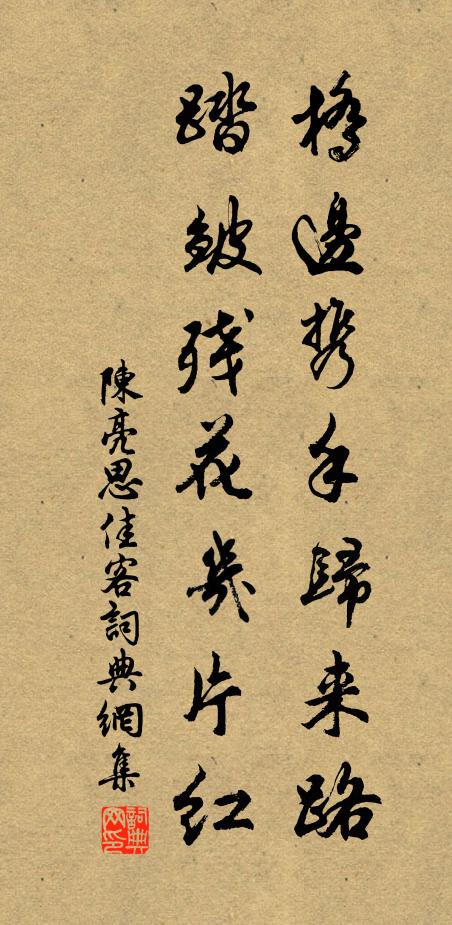 橋邊携手歸来路
踏皺残花幾片紅
陳亮思佳客詞典網集
詞典网印